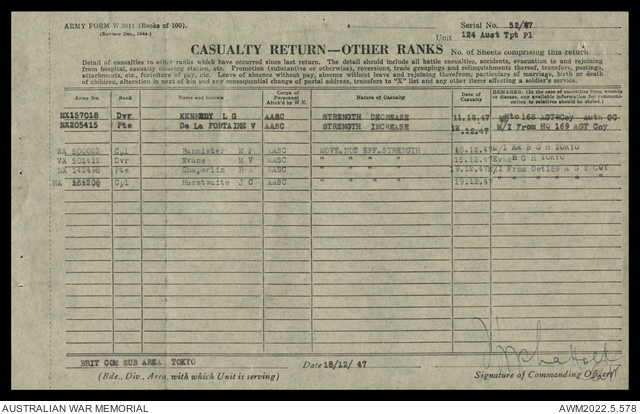 ARMY FORM W.3011 (Books of 100).
(Revised Dec., 1944.)
Serial No. 52/47
Unit 124 Aust Tpt Pl
CASUALTY RETURN—OTHER RANKS
No. of Sheets comprising this return
Detail of casualties to other ranks which have occurred since last return. The detail should include all battle casualties, accidents, evacuation to and rejoining
from hospital, casualty clearing station, etc. Promotion (substantive or otherwise), reversions, trade groupings and relinquishments thereof, transfers, postings,
attachments, etc., forfeiture of pay, etc. Leave of absence without pay, absence without leave and rejoining therefrom, particulars of marriage, birth or death
of children, alteration in next of kin and any consequential change of postal address, transfers to "X" list and any other items affecting a soldier's service.
Army No. Rank Name and Initials Corps of Personnel Attch'd by W.E. Nature of Casualty Date of Casualty REMARKS. (In the case of casualties from wounds or disease, any available information for communication to relatives should be stated.)
NX157018 Dvr KENNEDY L G AASC STRENGTH DECREASE 11.12.47 to 168 AGT Coy Auth OC
NX205415 Pte De La FONTAINE V AASC STRENGTH INCREASE 12.12.47 M/I From HQ 169 AGT Coy
SX 500022 Cpl Bannister M F AASC MOVE.NOT EFF.STRENGTH 15.12.47 M/I EX B G H TOKYO
VX 501412 Dvr Evans M V AASC " " " " 15.12.47 Evac B G H TOKYO
NX 142498 Pte Chaperlin H AASC " " " " 19.12.47 M/I From Det169 A G T COY
NX Cpl Hurstwaite J C AASC " " " " 19.12.47 " " " " " "
BRIT COM SUB AREA TOKYO
Date 18/12/ 47
(Bde., Div., Area, with which Unit is serving)
Signature of Commanding Officer
AUSTRALIAN WAR MEMORIAL
AWM2022.5.578